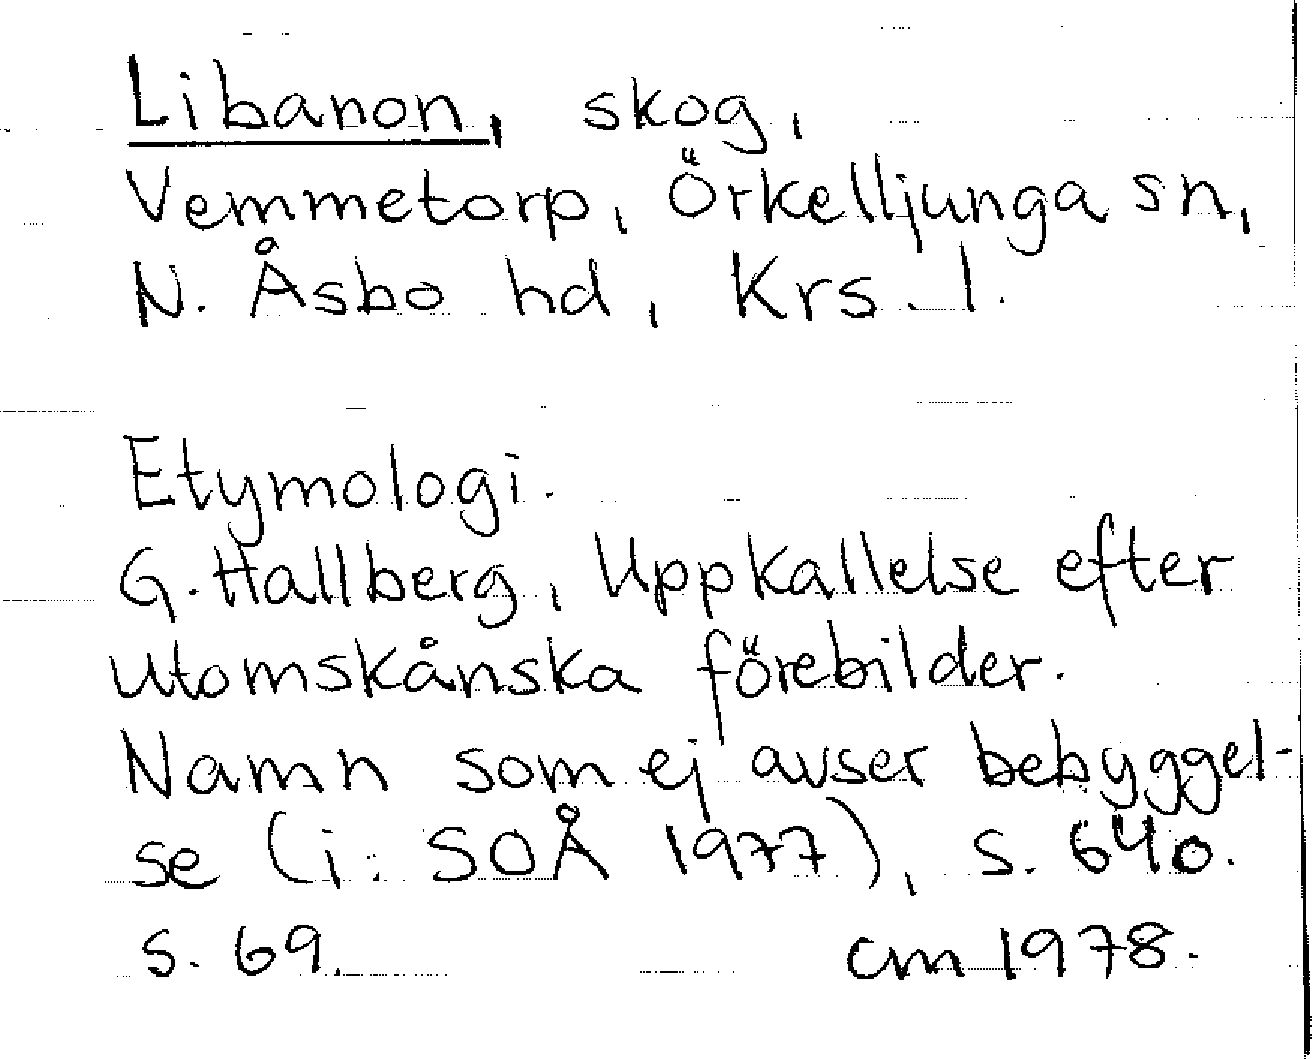 Libanon, skog,
Vemmetorp, Örkelljunga sn,
N. Åsbo hd, Krs. l.
Etymologi.
G. Hallberg, Uppkallelse efter
utomskånska förebilder.
Namn som ej avser bebyggel-
se (i: SOÅ 1977), s. 640.
s. 69. cm 1978.